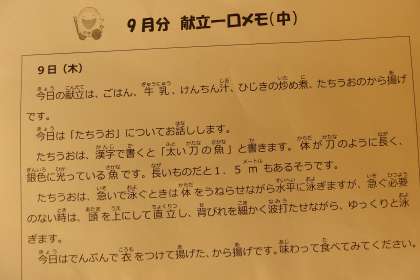 9月分 献立一口メモ(中)
9日(木)
今日の献立は、ごはん、牛乳、けんちん汁、ひじきの炒め煮、たちうおのから揚げ
です。
今日は「たちうお」についてお話しします。
たちうおは、漢字で書くと「太い刀の魚」と書きます。体が刀のように長く、
銀色に光っている魚です。長いものだと1.5mもあるそうです。
たちうおは、急いで泳ぐときは体をうねらせながら水平に泳ぎますが、急ぐ必要
のない時は、頭を上にして直立し、背びれを細かく波打たせながら、ゆっくりと泳
ぎます。
今日はでんぷんで衣をつけて揚げた、から揚げです。味わって食べてみてください。